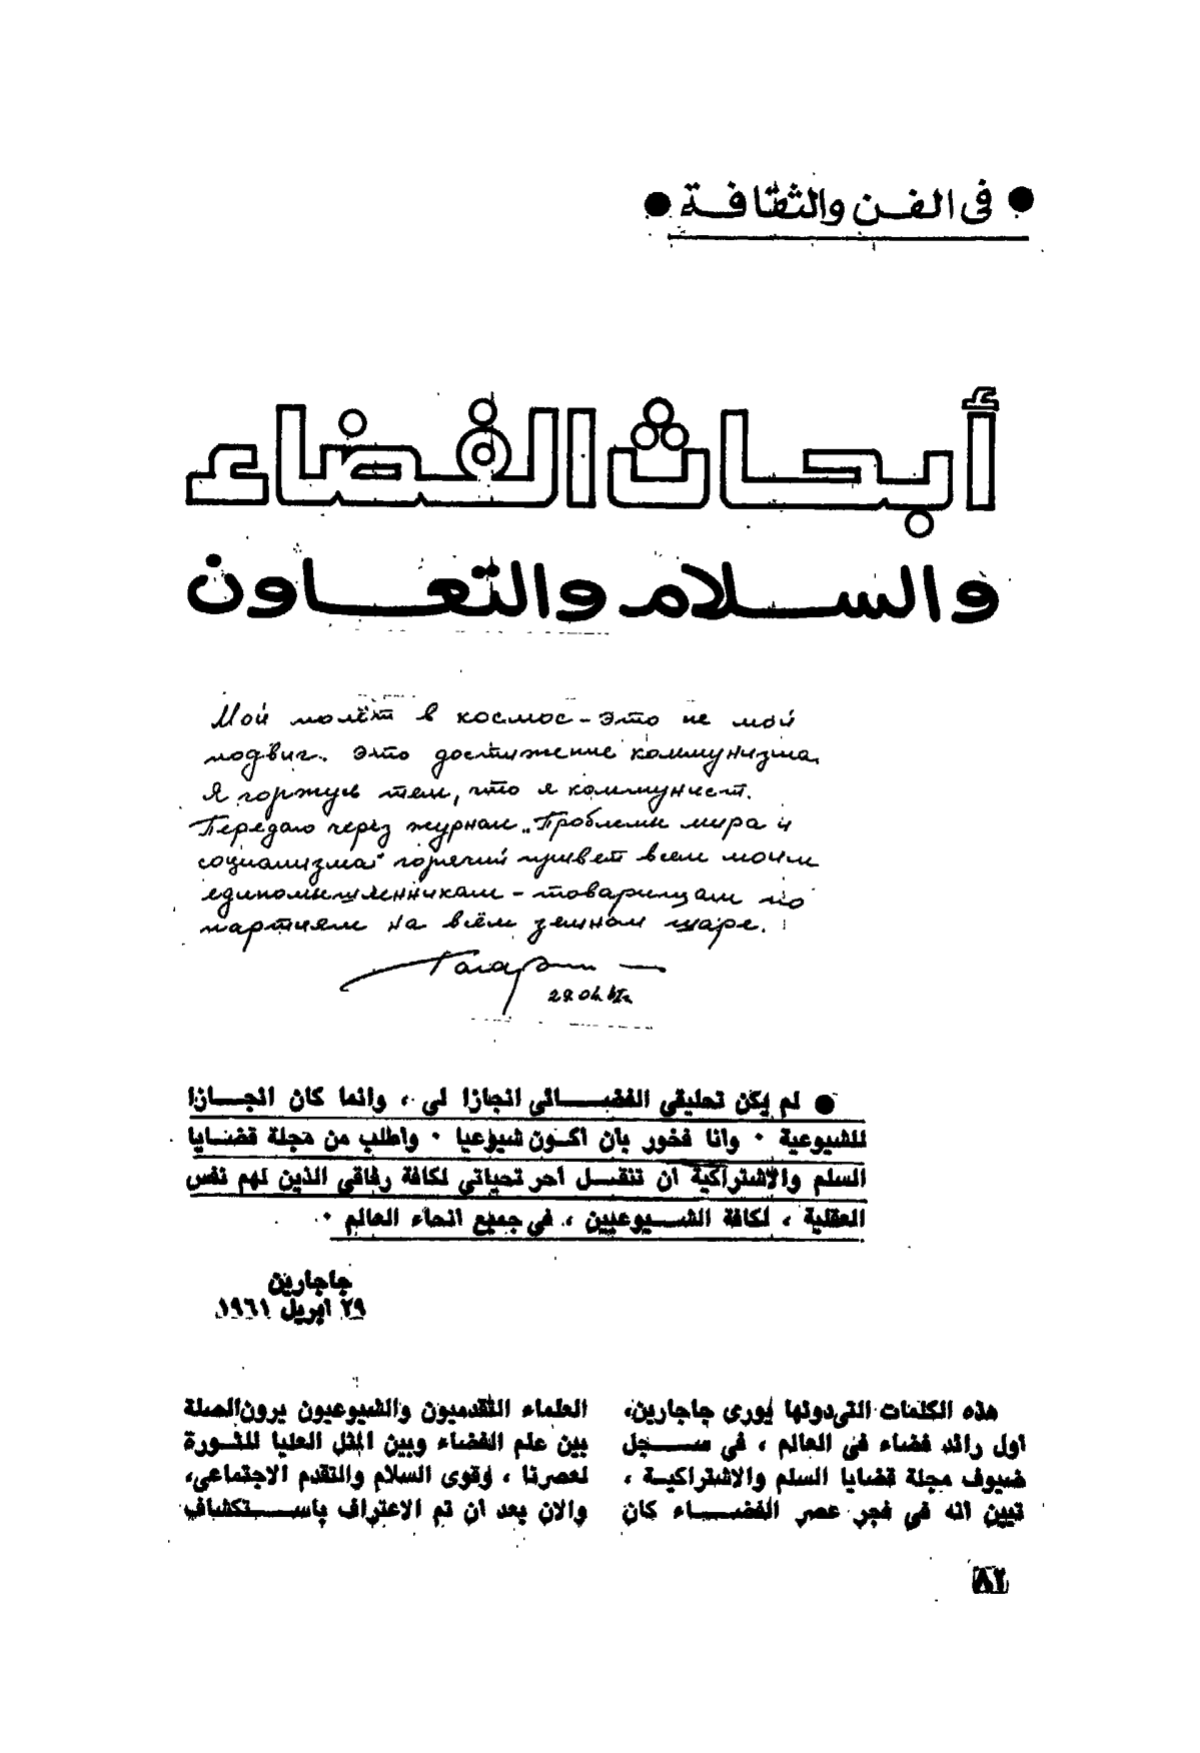 ● فى الفن والثقافة ●
أبحاث الفضاء
والسلام والتعاون
Мой полёт в космос - это не мой
подвиг. Это достижение коммунизма.
Я горжусь тем, что я коммунист.
Передаю через журнал „Проблемы мира и
социализма" горячий привет всем моим
единомышленникам - товарищам по
партиям на всём земном шаре.
Гагарин
29.04.61г.
● لم يكن تحليقى الفضائى انجازا لى ، وانما كان انجازا
للشيوعية ٠ وانا فخور بأن اكون شيوعيا ٠ واطلب من مجلة قضايا
السلم والاشتراكية ان تنقل أحر تحياتى لكافة رفاقى الذين لهم نفس
العقلية ، لكافة الشيوعيين ، فى جميع انحاء العالم ٠
جاجارين
٢٩ ابريل ١٩٦١
هذه الكلمات التى دونها يورى جاجارين،
اول رائد فضاء فى العالم ، فى سجل
ضيوف مجلة قضايا السلم والاشتراكية ،
تبين انه فى فجر عصر الفضاء كان
العلماء التقدميون والشيوعيون يرون الصلة
بين علم الفضاء وبين المثل العليا للثورة
لعصرنا ، وقوى السلام والتقدم الاجتماعى،
والان بعد ان تم الاعتراف باستكشاف
٨٢